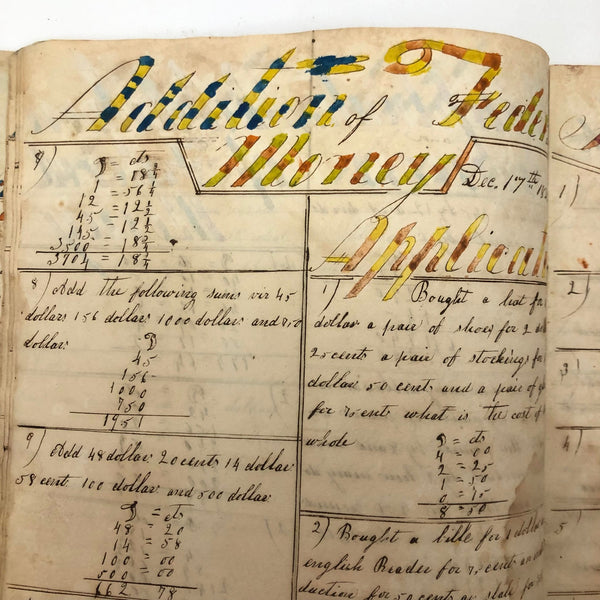 Addition of Feder
Money
Dec. 17th 18
$ = cts
= 18 3/4
1 = 56 1/4
12 = 12 1/2
45 = 12 1/2
145 =
3500 = 18 3/4
3704 = 18 3/4
8) Add the following sums viz 45
dollars 156 dollars 1000 dollars and 750
dollars
$
45
156
1000
750
1951
9) Add 48 dollar 20 cents 14 dollar
58 cent 100 dollar and 500 dollar
$ = cts
48 = 20
14 = 58
100 = 00
500 = 00
662 78
Applicat
1) Bought a hat for
dollar a pair of shoes for 2 do
25 cents a pair of stockings f
dollar 50 cents and a pair of g
for 75 cents what is the cost of
whole
$ = cts
4 = 00
2 = 25
1 = 50
0 = 75
8 = 50
2) Bought a bille for 1 dollar
english Reader for 75 cents an
duction for 50 cents a slate for
1)
2)
3)
4)
5